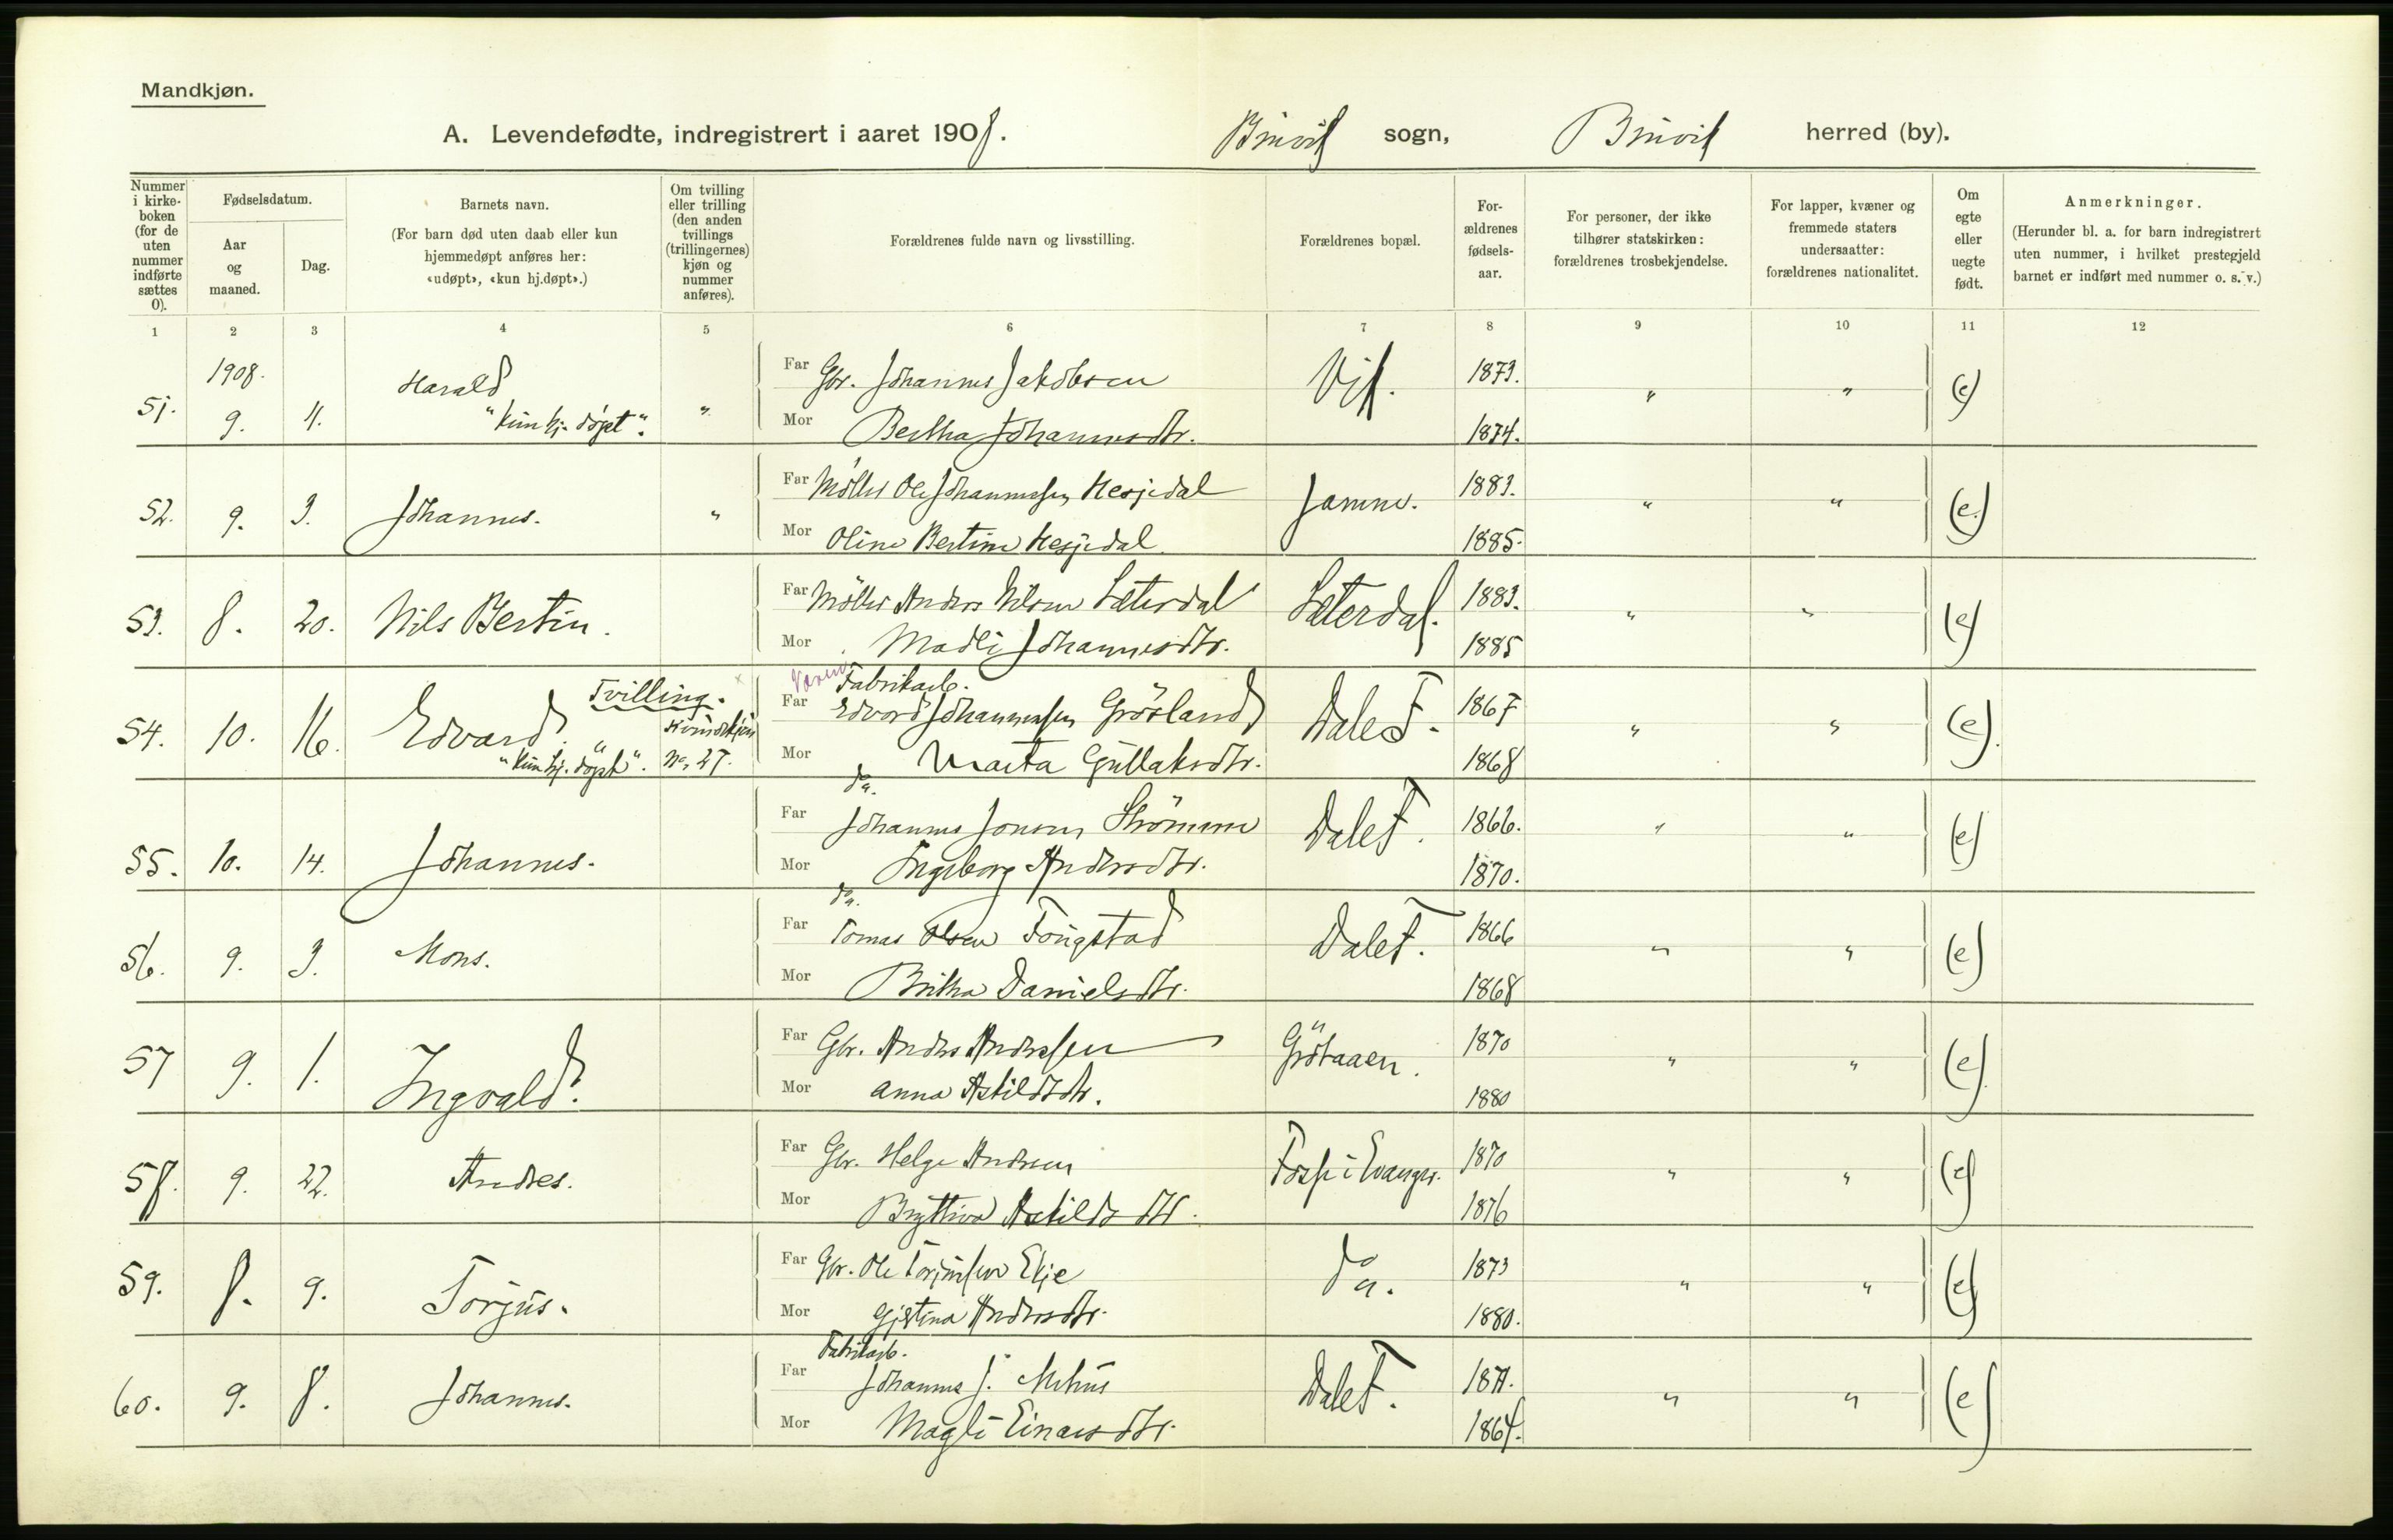 Mandkjøn.
A. Levendefødte, indregistrert i aaret 1908. Bruvik sogn, Bruvik herred (by).
Nummer i kirkeboken (for de uten nummer indførte sættes 0).
Fødselsdatum.
Aar og maaned.
Dag.
Barnets navn.
(For barn død uten daab eller kun hjemmedøpt anføres her: «udøpt», «kun hj.døpt».)
Om tvilling eller trilling (den anden tvillings (trillingernes) kjøn og nummer anføres).
Forældrenes fulde navn og livsstilling.
Forældrenes bopæl.
For-ældrenes fødsels-aar.
For personer, der ikke tilhører statskirken: forældrenes trosbekjendelse.
For lapper, kvæner og fremmede staters undersaatter: forældrenes nationalitet.
Om egte eller uegte født.
Anmerkninger.
(Herunder bl. a. for barn indregistrert uten nummer, i hvilket prestegjeld barnet er indført med nummer o. s. v.)
1 2 3 4 5 6 7 8 9 10 11 12
1908.
51. 9. 11. Harald "kun hj. døpt". " Far Gbr. Johannes Jakobsen Vik. 1873. " " (e)
Mor Bertha Johannesdtr. 1874.
52. 9. 3. Johannes. " Far Møller Ole Johannessen Hesjedal Jamne. 1883. " " (e)
Mor Oline Bertine Hesjedal 1885.
53. 8. 20. Nils Bertin. Far Møller Anders Nilsen Sæterdal Sæterdal. 1883. " " (e)
Mor Madli Johannesdtr. 1885
54. 10. 16. Edvard. "kun hj. døpt". Tvilling. Kvindekjøn No. 27. Fabrikarb.
Far Edvard Johannessen Grøsland Dale F. 1867 " " (e).
Mor Marta Gullaksdtr. 1868
55. 10. 14. Johannes. do.
Far Johannes Jonsen Strømme Dale F. 1866. " " (e)
Mor Ingeborg Andersdtr. 1870.
56. 9. 3. Mons. do.
Far Tomas Olsen Fougstad Dale F. 1866 " " (e)
Mor Britha Danielsdtr. 1868
57 9. 1. Ingvald. Far Gbr. Anders Anderssen Grøtaaen. 1870 " " (e)
Mor Anna Askildsdtr. 1880
58. 9. 22. Andres. Far Gbr. Helge Andersen Fosse i Evanger. 1870 " " (e)
Mor Bryttiva Askildsdtr. 1876
59. 8. 9. Torjus. Far Gbr. Ole Torjussen Ekje do. 1873 " " (e)
Mor Gjertina Andersdtr. 1880.
60. 9. 8. Johannes. Fabrikarb.
Far Johannes J. Mehus Dale F. 1871. " " (e)
Mor Magli Einarsdtr. 1864.